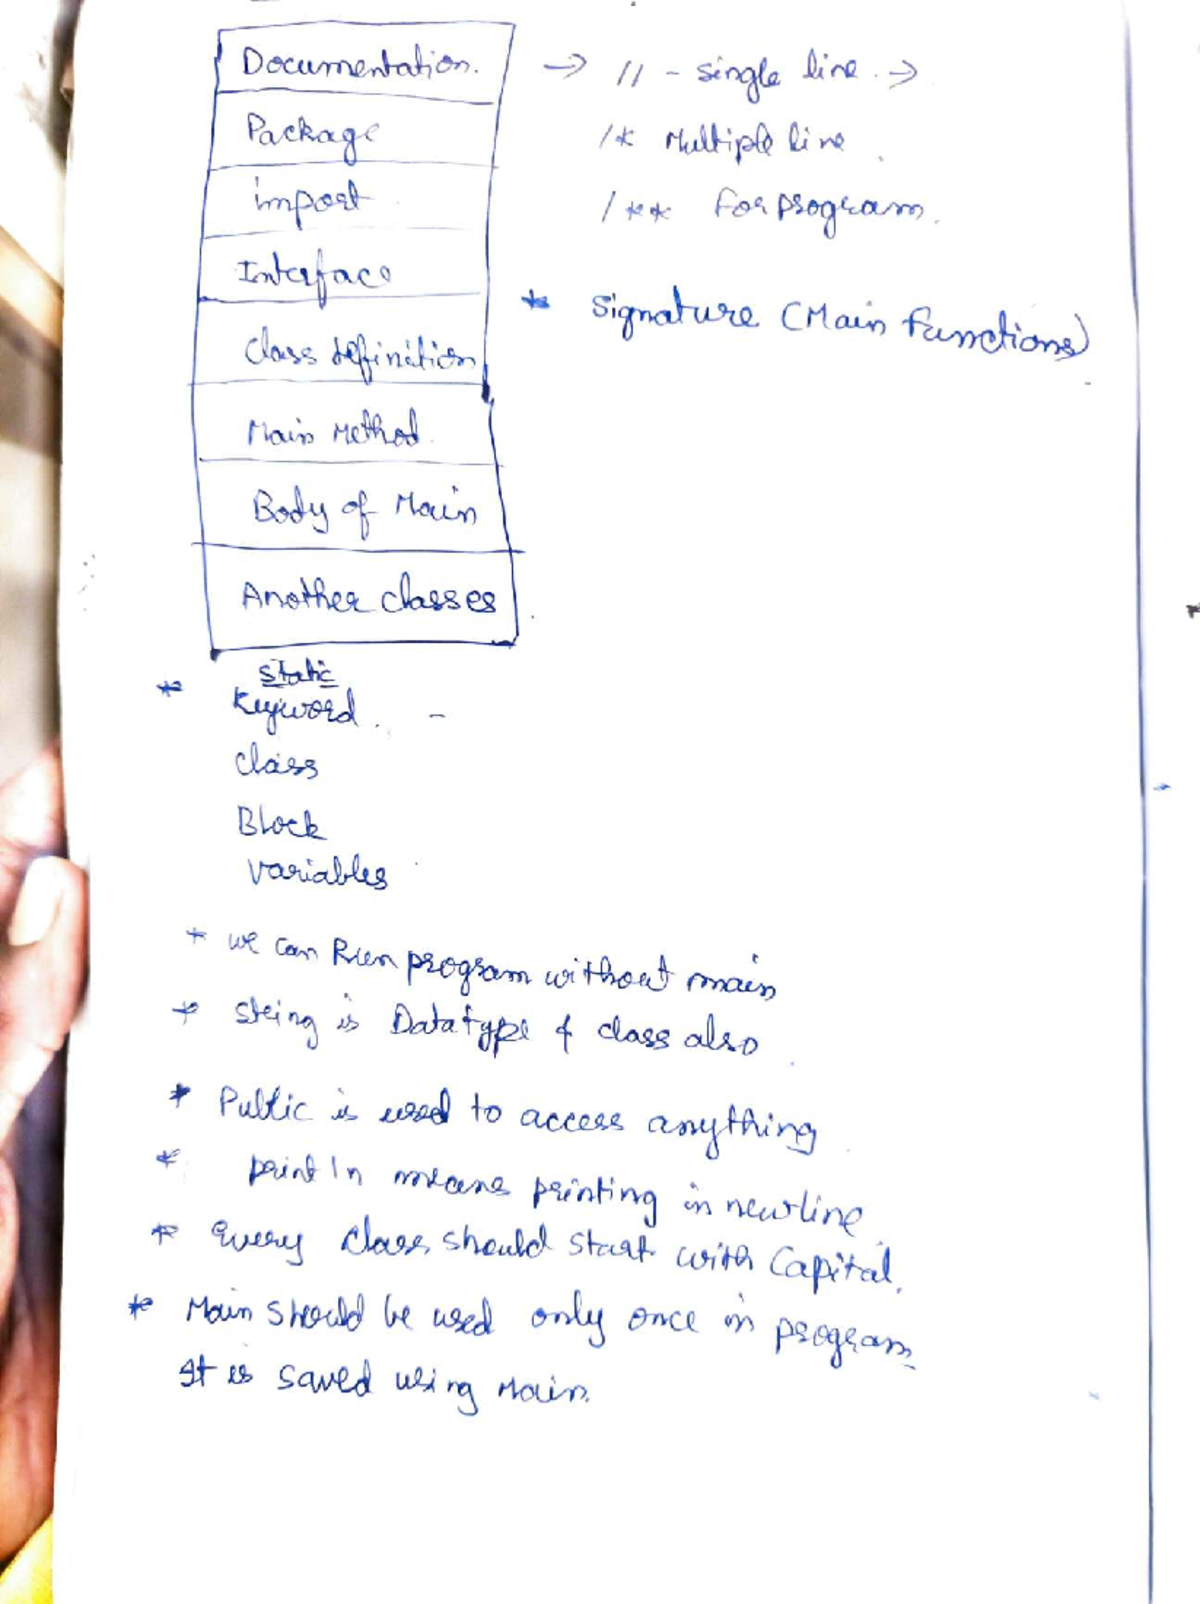 Documentation. → // - single line. →
Package /* Multiple line
import /** For program.
Interface
* Signature (Main Functions)
Class definition
Main Method
Body of Main
Another classes
static
* Keyword. -
class
Block
variables
* we can Run program without main
* String is Datatype & class also
* Public is used to access anything
* println means printing in newline
* Every class should start with Capital.
* Main should be used only once in program
It is saved using Main.